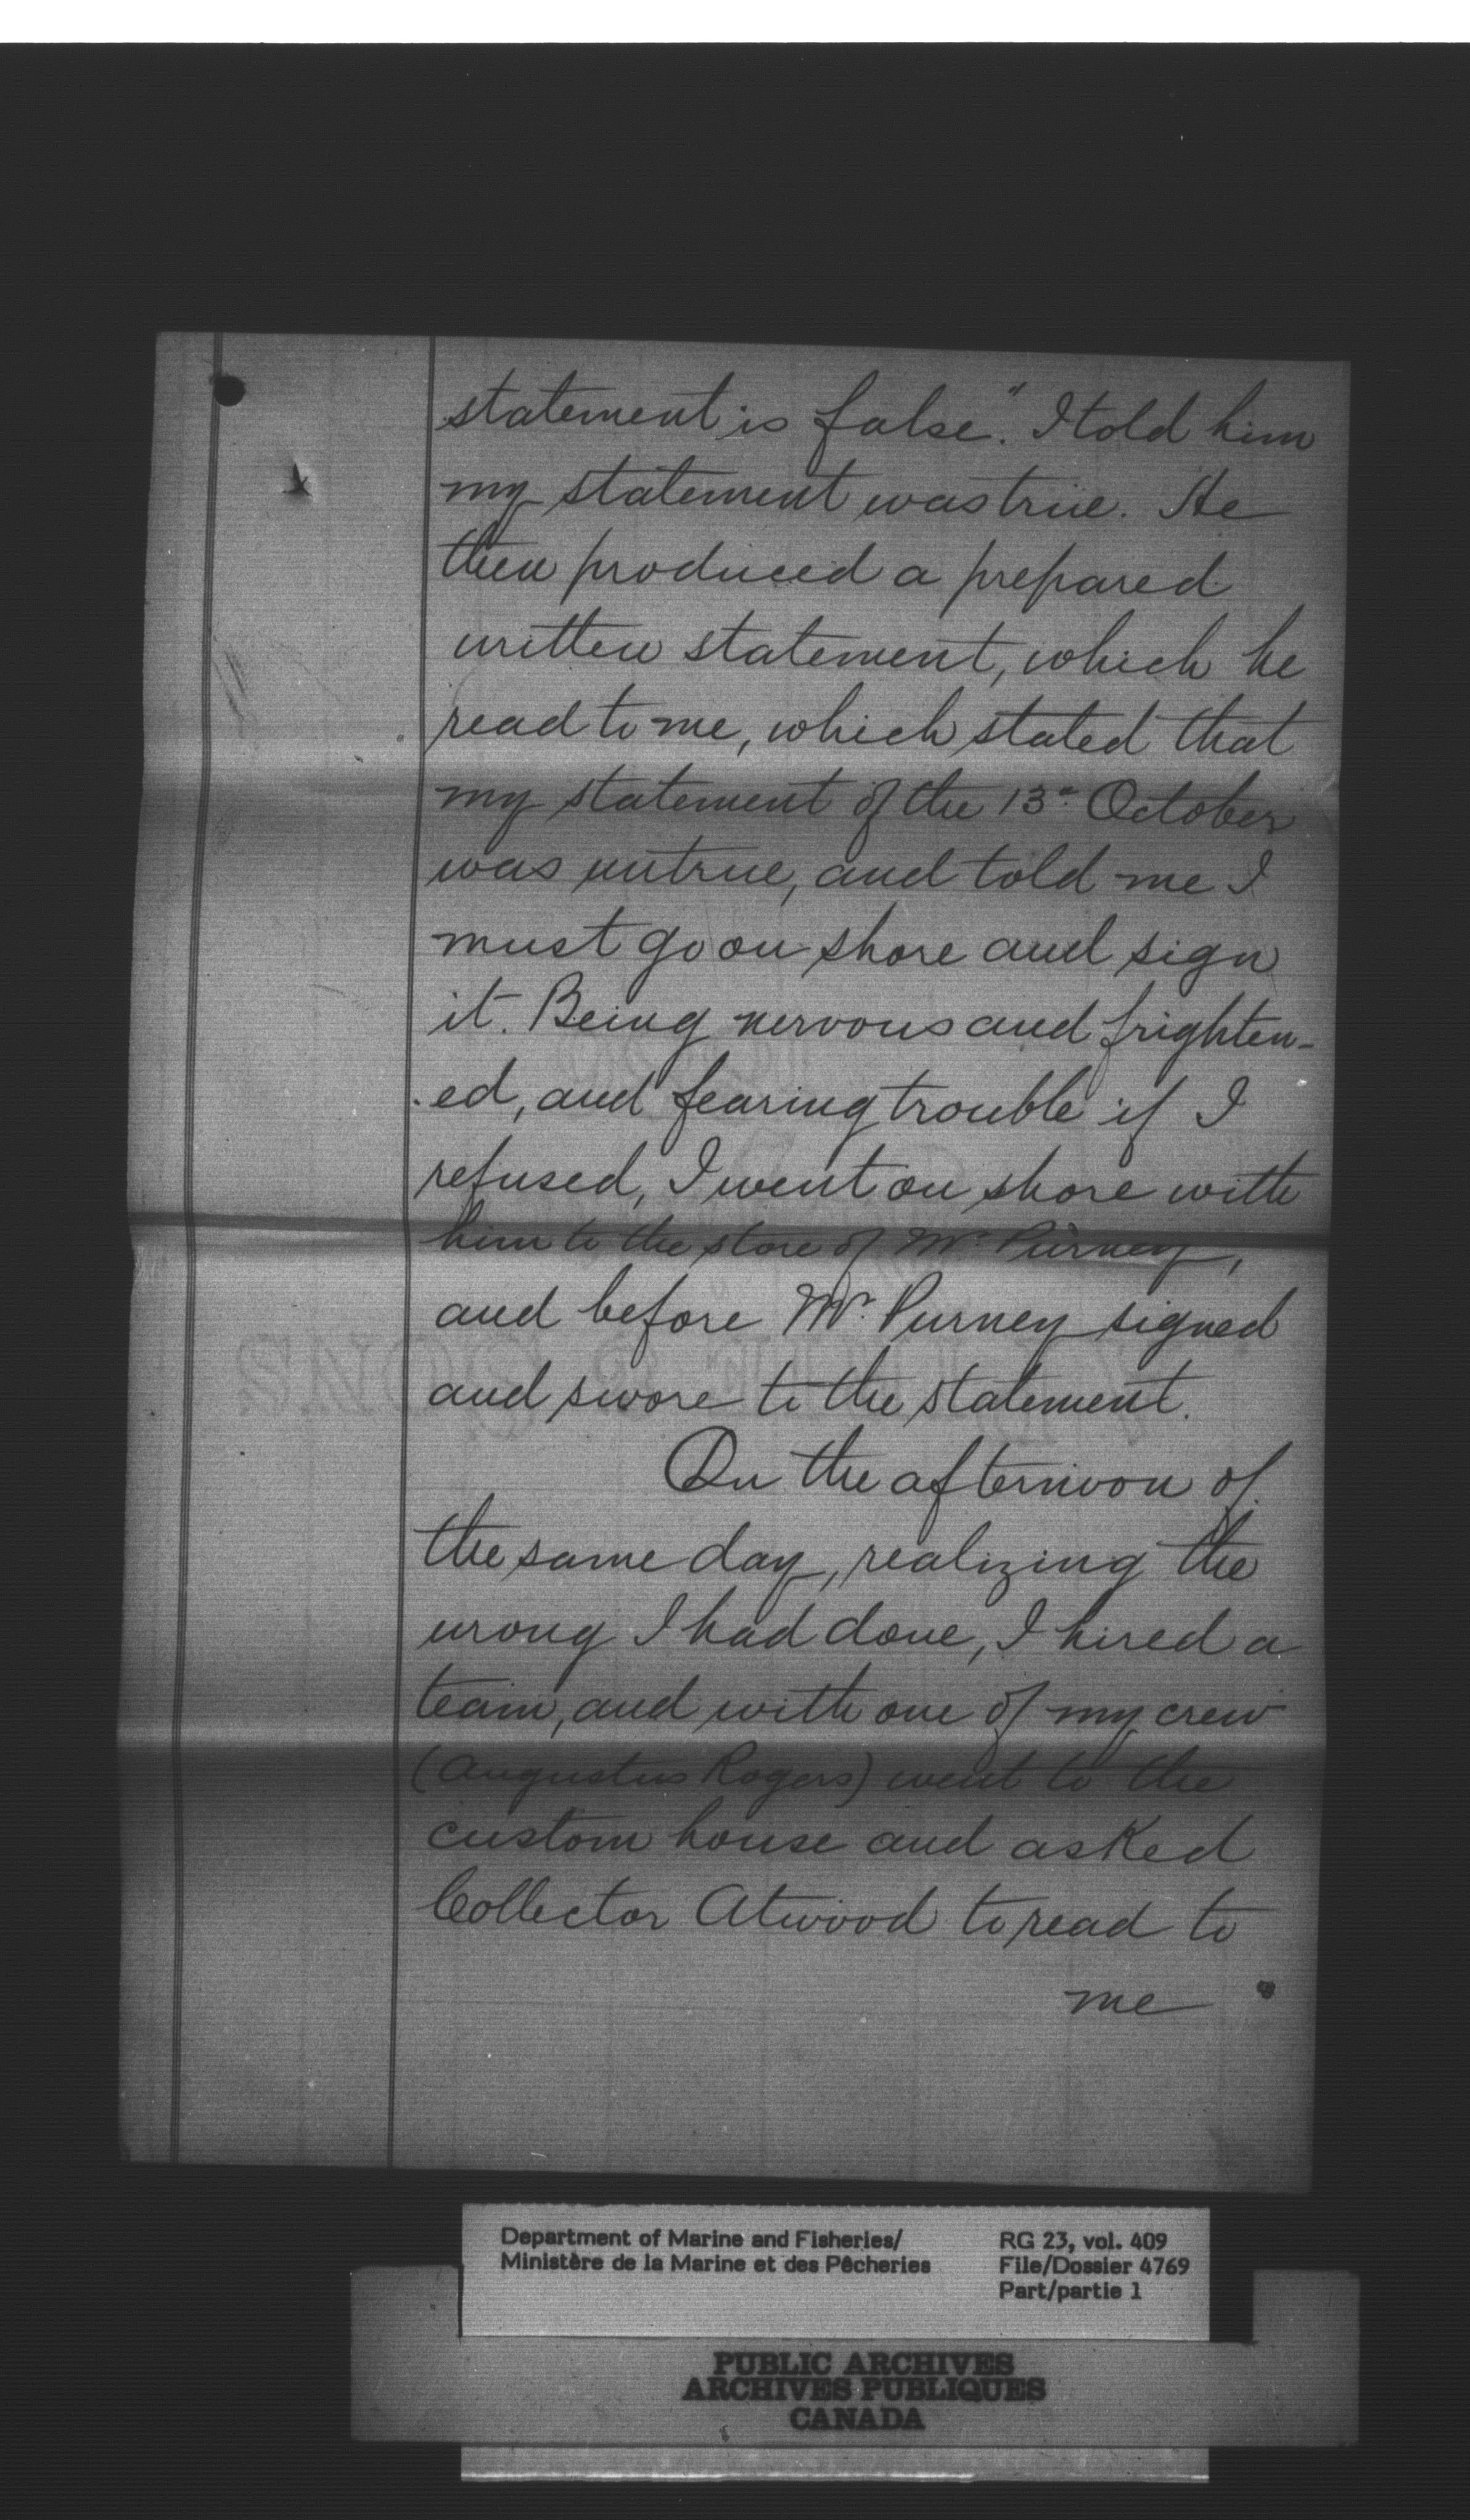 statement is false." I told him
my statement was true. He
then produced a prepared
written statement, which he
read to me, which stated that
my statement of the 13th October
was untrue, and told me I
must go on shore and sign
it. Being nervous and frighten-
ed, and fearing trouble if I
refused, I went on shore with
him to the store of Mr. Purney,
and before Mr. Purney signed
and swore to the statement.
On the afternoon of
the same day, realizing the
wrong I had done, I hired a
team, and with one of my crew
(Augustus Rogers) went to the
custom house and asked
Collector Atwood to read to
me
Department of Marine and Fisheries/
Ministère de la Marine et des Pêcheries
RG 23, vol. 409
File/Dossier 4769
Part/partie 1
PUBLIC ARCHIVES
ARCHIVES PUBLIQUES
CANADA